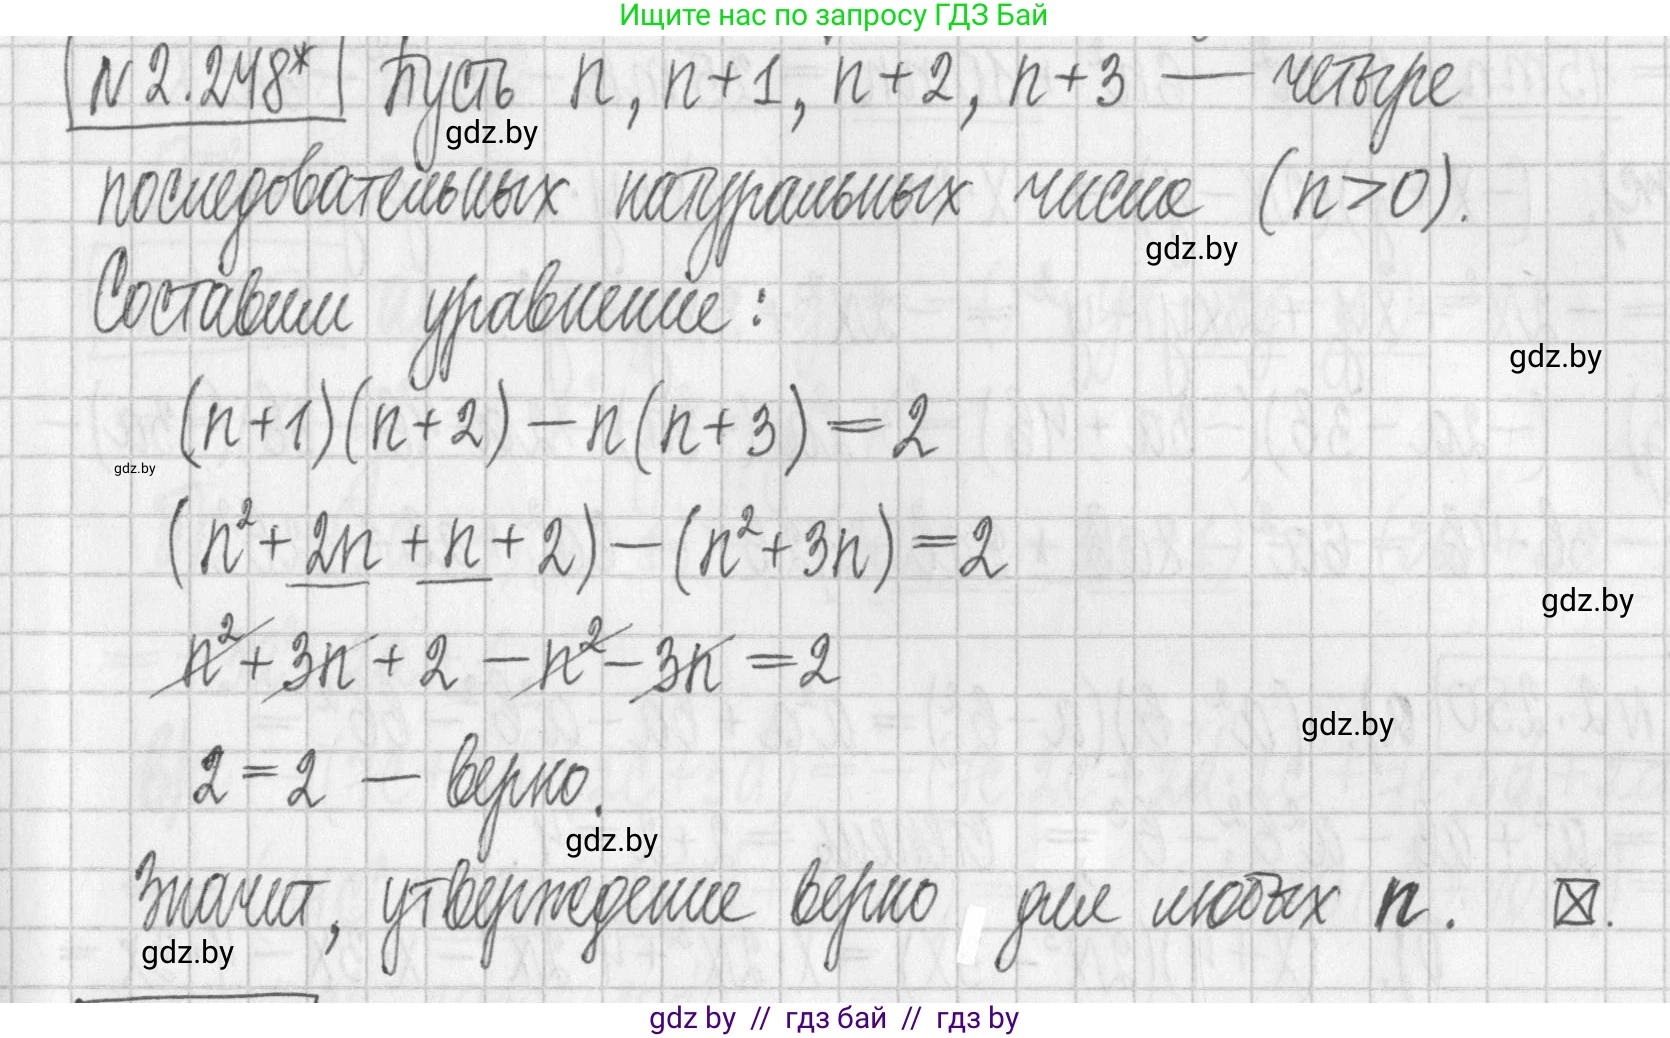 Ищите нас по запросу ГДЗ Бай
N 2.248* Пусть n, n+1, n+2, n+3 — четыре
gdz.by
последовательных натуральных числа (n>0).
gdz.by
Составим уравнение:
gdz.by
(n+1)(n+2)-n(n+3)=2
gdz.by
(n²+2n+n+2)-(n²+3n)=2
gdz.by
n²+3n+2-n²-3n=2
gdz.by
2=2 — верно.
gdz.by
Значит, утверждение верно для любых n. ☒.
gdz.by
gdz by // гдз бай // гдз by